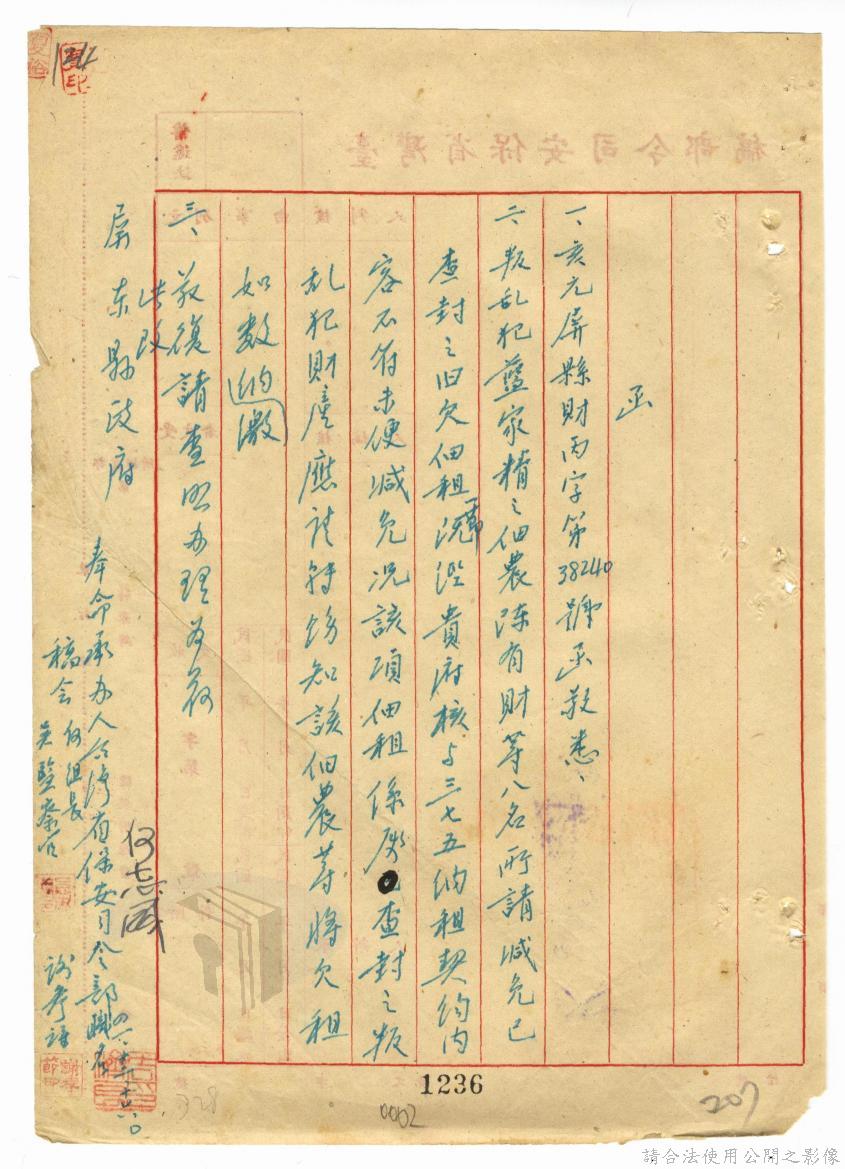 函
一、亥元屏縣財丙字第38240號函敬悉、
二、叛乱犯藍家精之佃農陳有財等八名所請減免已
查封之旧欠佃租一節經貴府核与三七五納租契約內
容不符未便減免况該項佃租係查封之叛
乱犯財產應請轉飭知該佃農等將欠租
如数繳納
三、敬復請查照办理為荷
此致
屏東縣政府
奉命承办人台灣省保安司令部職
稿会
何組長
吳監察官
何志
臺灣省保安司令部稿
1236
0002
207
328
請合法使用公開之影像